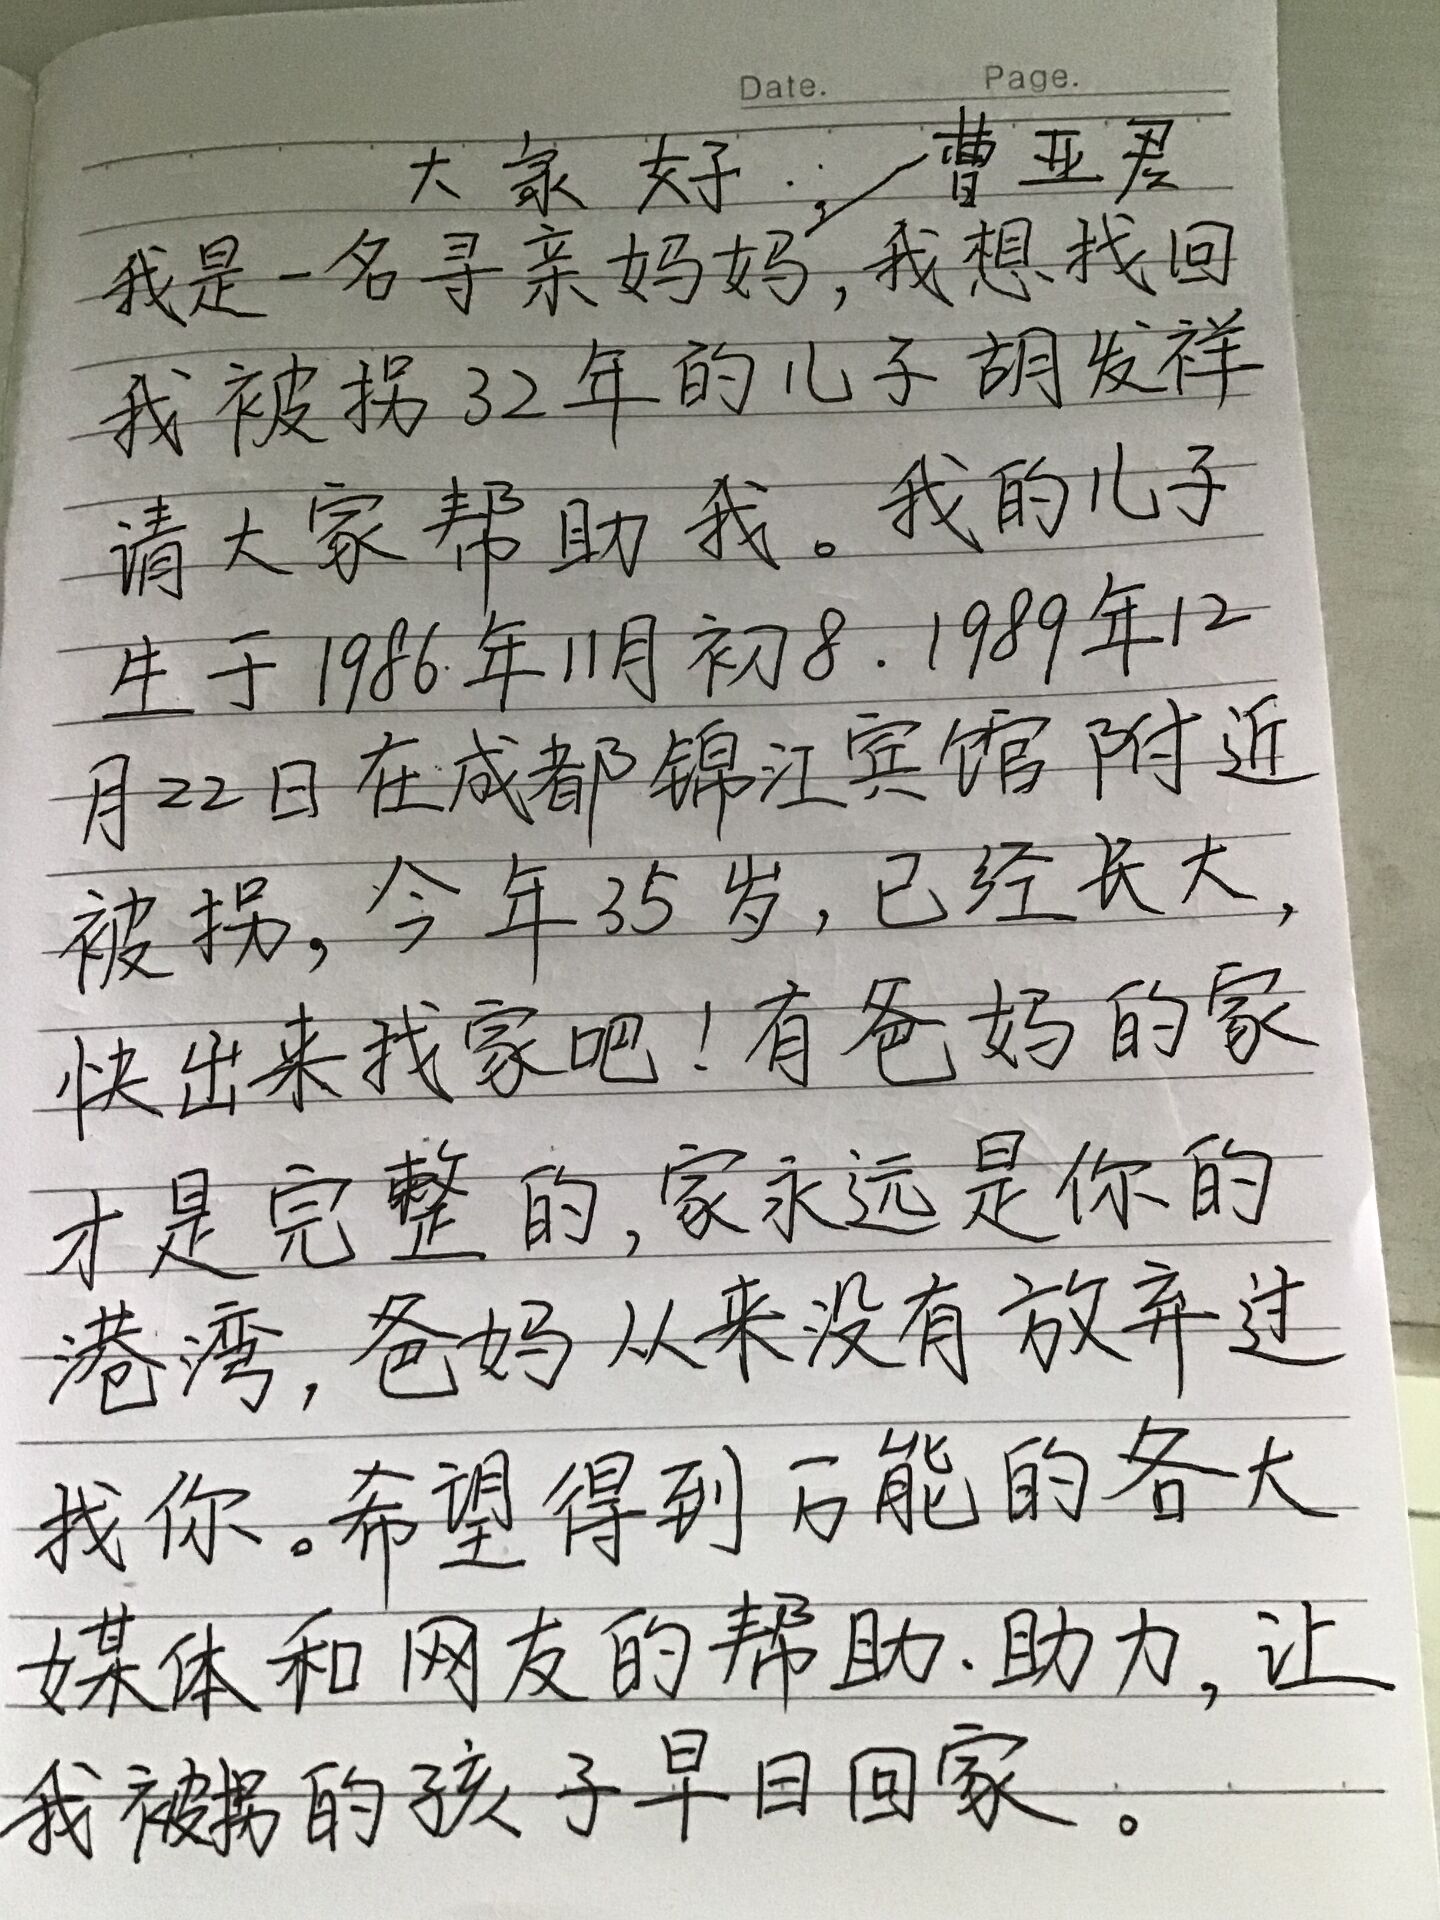 Date. Page.
大家好. , 曹亚君
我是一名寻亲妈妈,我想找回
我被拐32年的儿子胡发祥
请大家帮助我。我的儿子
生于1986.年11月初8.1989年12
月22日在成都锦江宾馆附近
被拐,今年35岁,已经长大,
快出来找家吧!有爸妈的家
才是完整的,家永远是你的
港湾,爸妈从来没有放弃过
找你。希望得到万能的各大
媒体和网友的帮助.助力,让
我被拐的孩子早日回家。